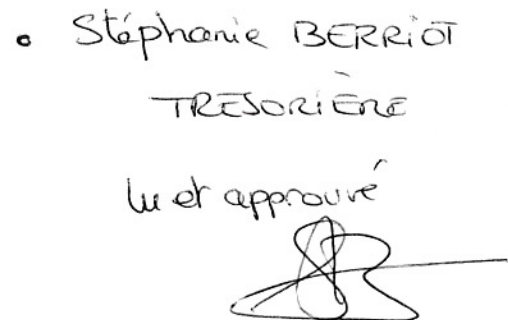 • Stéphanie BERRIOT
TRESORIÈRE
lu et approuvé